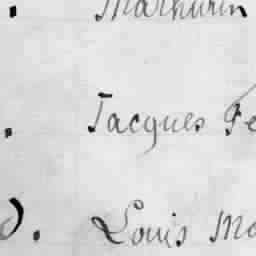 . Mathurin
. Jacques Fe
d. Louis Ma